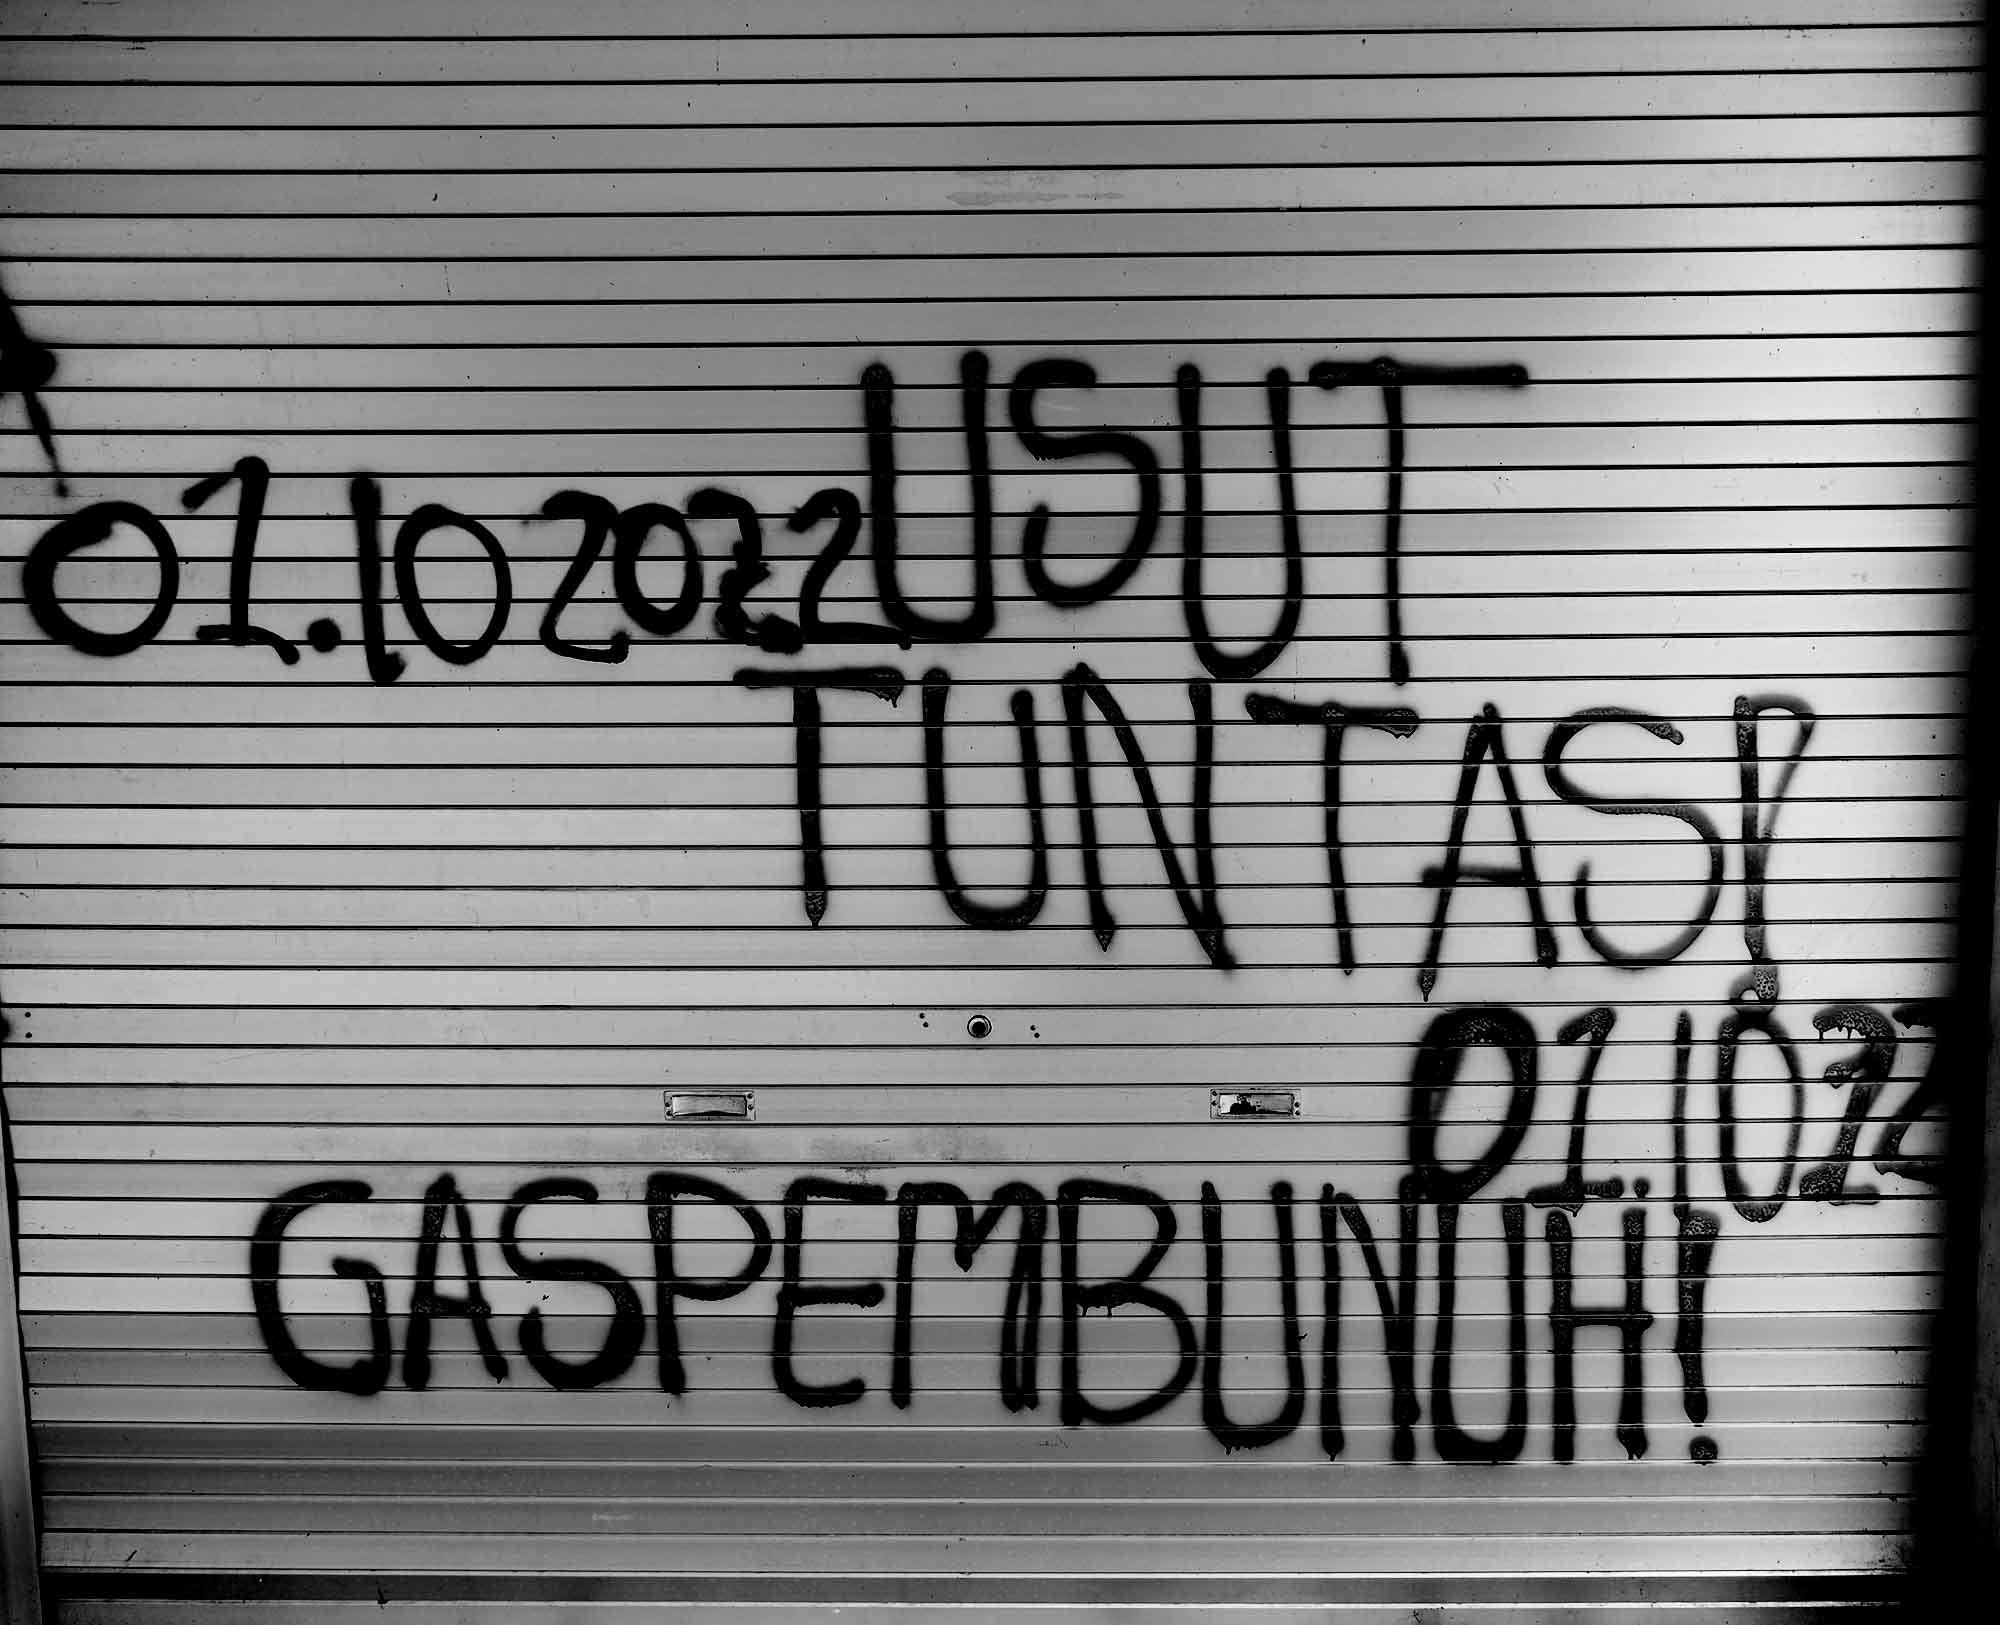 01.10 2022 USUT
TUNTAS!
01.10 22
GAS PEMBUNUH!